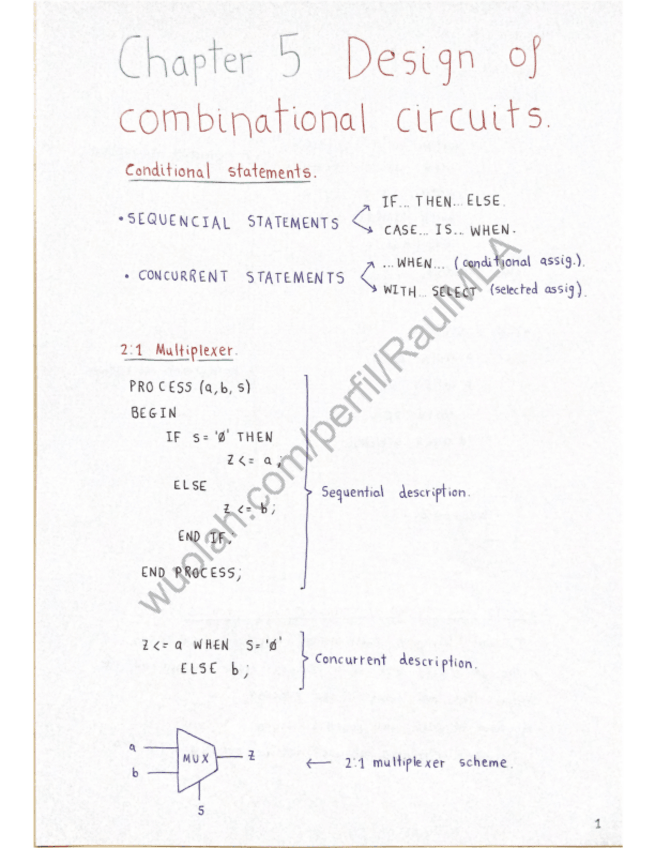 Chapter 5 Design of
combinational circuits.
Conditional statements.
• SEQUENCIAL STATEMENTS
IF... THEN... ELSE.
CASE... IS... WHEN.
• CONCURRENT STATEMENTS
...WHEN... (conditional assig.).
WITH... SELECT (selected assig).
2:1 Multiplexer.
PROCESS (a, b, s)
BEGIN
IF s = '0' THEN
Z <= a;
ELSE
Z <= b;
END IF;
END PROCESS;
Sequential description.
Z <= a WHEN S = '0'
ELSE b;
Concurrent description.
a
b
MUX
Z
S
← 2:1 multiplexer scheme.
1
wuolah.com/perfil/RaulMLA